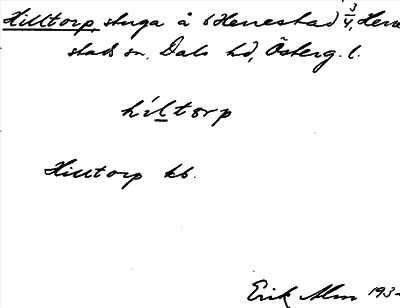 Hilltorp, stuga å Herrestad 3/4, Herre
stads sn, Dals hd, Österg. l.
híltorp
Hilltorp kb.
Erik Alm 193